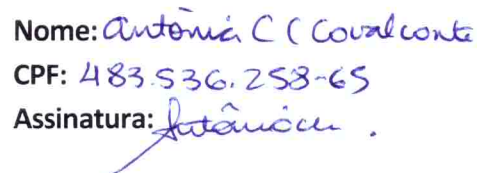 Nome: Antônia C C Cavalcante
CPF: 483.536.258-65
Assinatura: